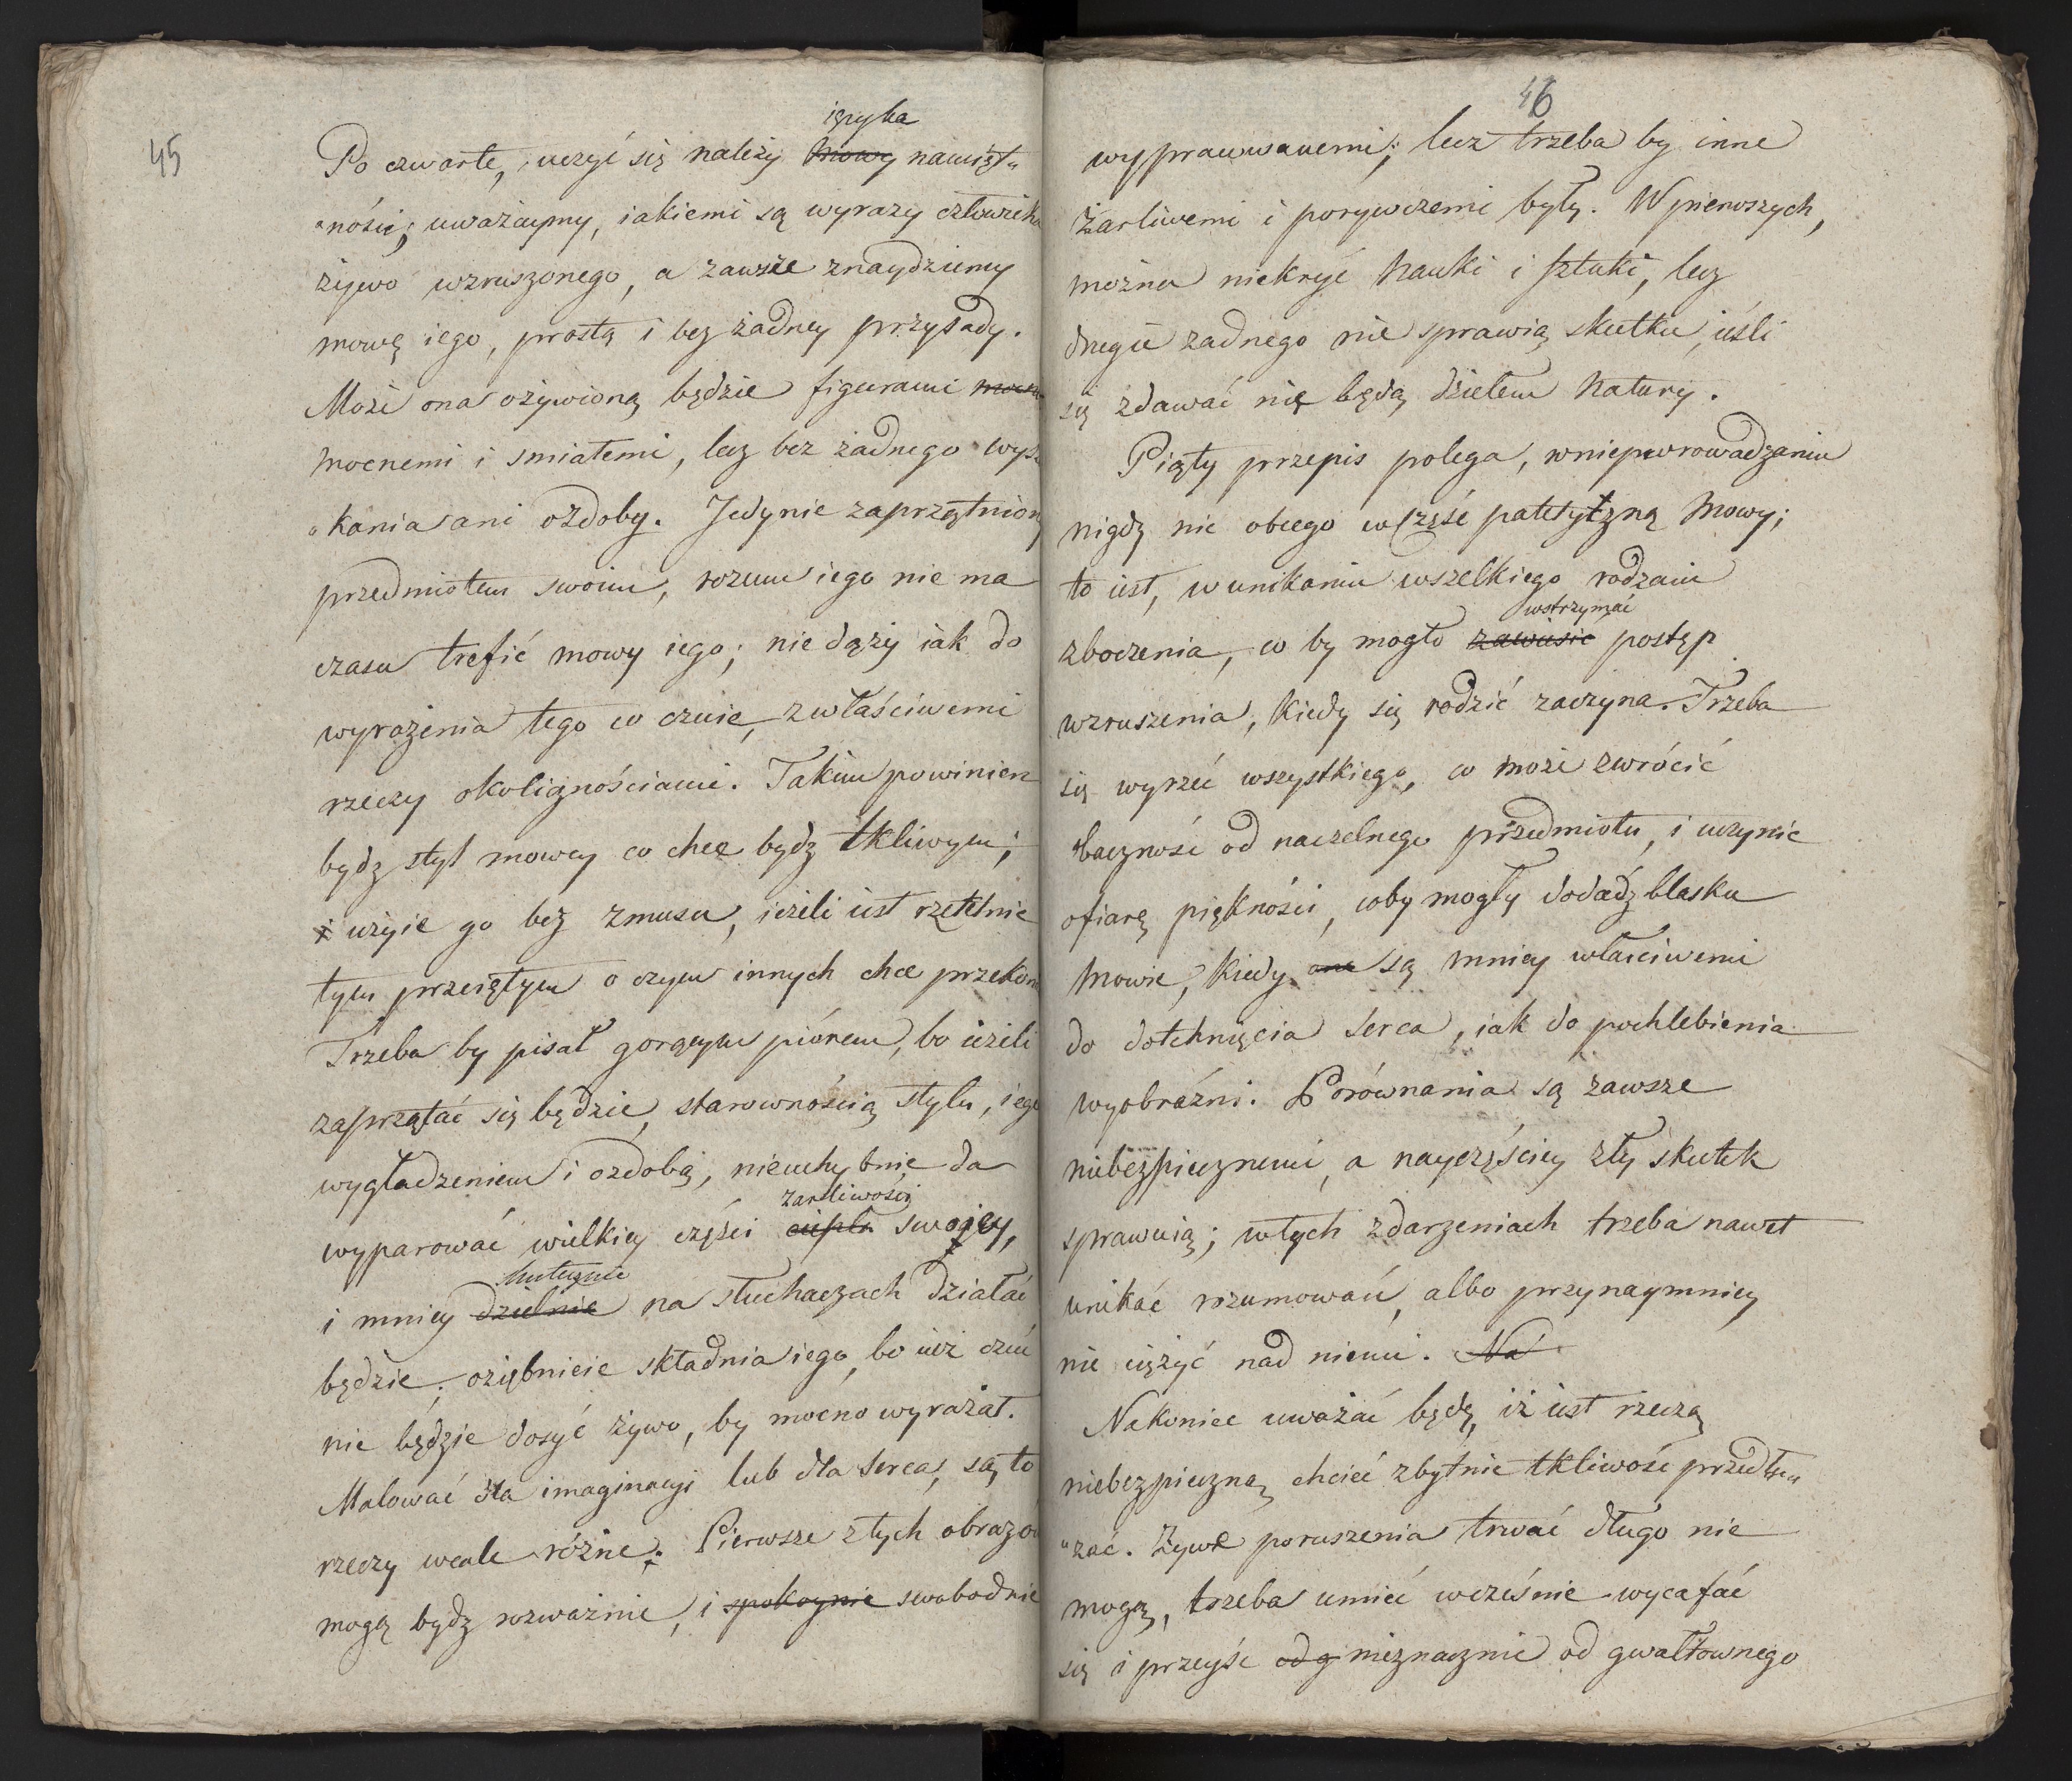 45
ięzyka
Po czwarte, uczyć się należy mowy namięt„
„ności; uważaymy, iakiemi są wyrazy człowieka
żywo wzruszonego, a zawsze znaydziemy
mowę iego, prostą i bez żadney przysady.
Może ona ożywioną będzie figurami
mocnemi i smiałemi, lecz bez żadnego wysz„
„kania ani ozdoby. Jedynie zaprzątniony
przedmiotem swoim, rozum iego nie ma
czasu trefić mowy iego; nie dąży iak do
wyrażenia tego co czuie, z właściwemi
rzeczy okolicznościami. Takim powinien
bydz styl mowcy co chce bydz tkliwym;
i użyie go bez zmusu, ieżeli iest rzetelnie
tym przeiętym o czym innych chce przekon
Trzeba by pisał gorącym piórem, bo ieżeli
zaprzątać się będzie, starownością stylu, iego
wygładzeniem i ozdobą, nieuchybnie da
żarliwości
wyparować wielkiey części ciepła swojey,
skutecznie
i mniey dzielnie na słuchaczach działać
będzie; oziębnieie składnia iego, bo iuż czuć
nie będzie dosyć żywo, by mocno wyrażał.
Malować dla imaginacyi lub dla serca, są to
rzeczy wcale różne. Pierwsze z tych obrazów
mogą bydz rozważnie, i spokoynie swobodnie
46
wypracowanemi; lecz trzeba by inne
żarliwemi i porywczemi były. W pierwszych,
można niekryć nauki i sztuki, lecz
drugie żadnego nie sprawią skutku, ieśli
się zdawać nie będą dziełem natury.
Piąty przepis polega, w niepwrowadzaniu
nigdy nic obcego w część patetyczną mowy;
to iest, w unikaniu wszelkiego rodzaiu
wstrzymać
zboczenia, co by mogło zawiesic postęp
wzruszenia, kiedy się rodzić zaczyna. Trzeba
się wyrzec wszystkiego, co może zwrócić
baczność od naczelnego przedmiotu, i uczynic
ofiarę piękności, coby mogły dodadz blasku
mowie, kiedy one są mniey właściwemi
do dotchnięcia serca, iak do pochlebienia
wyobraźni. Porównania są zawsze
niebezpiecznemi, a nayczęściey zły skutek
sprawuią; w tych zdarzeniach trzeba nawet
unikać rozumowań, albo przynaymniey
nie ciężyć nad niemi. Na
Nakoniec uważać będę, iż iest rzeczą
niebezpieczną, chcieć zbytnie tkliwość przedłu„
„żać. Żywe poruszenia trwać długo nie
mogą, trzeba umieć wcześnie wycafać
się i przeyśc od g nieznacznie od gwałtownego